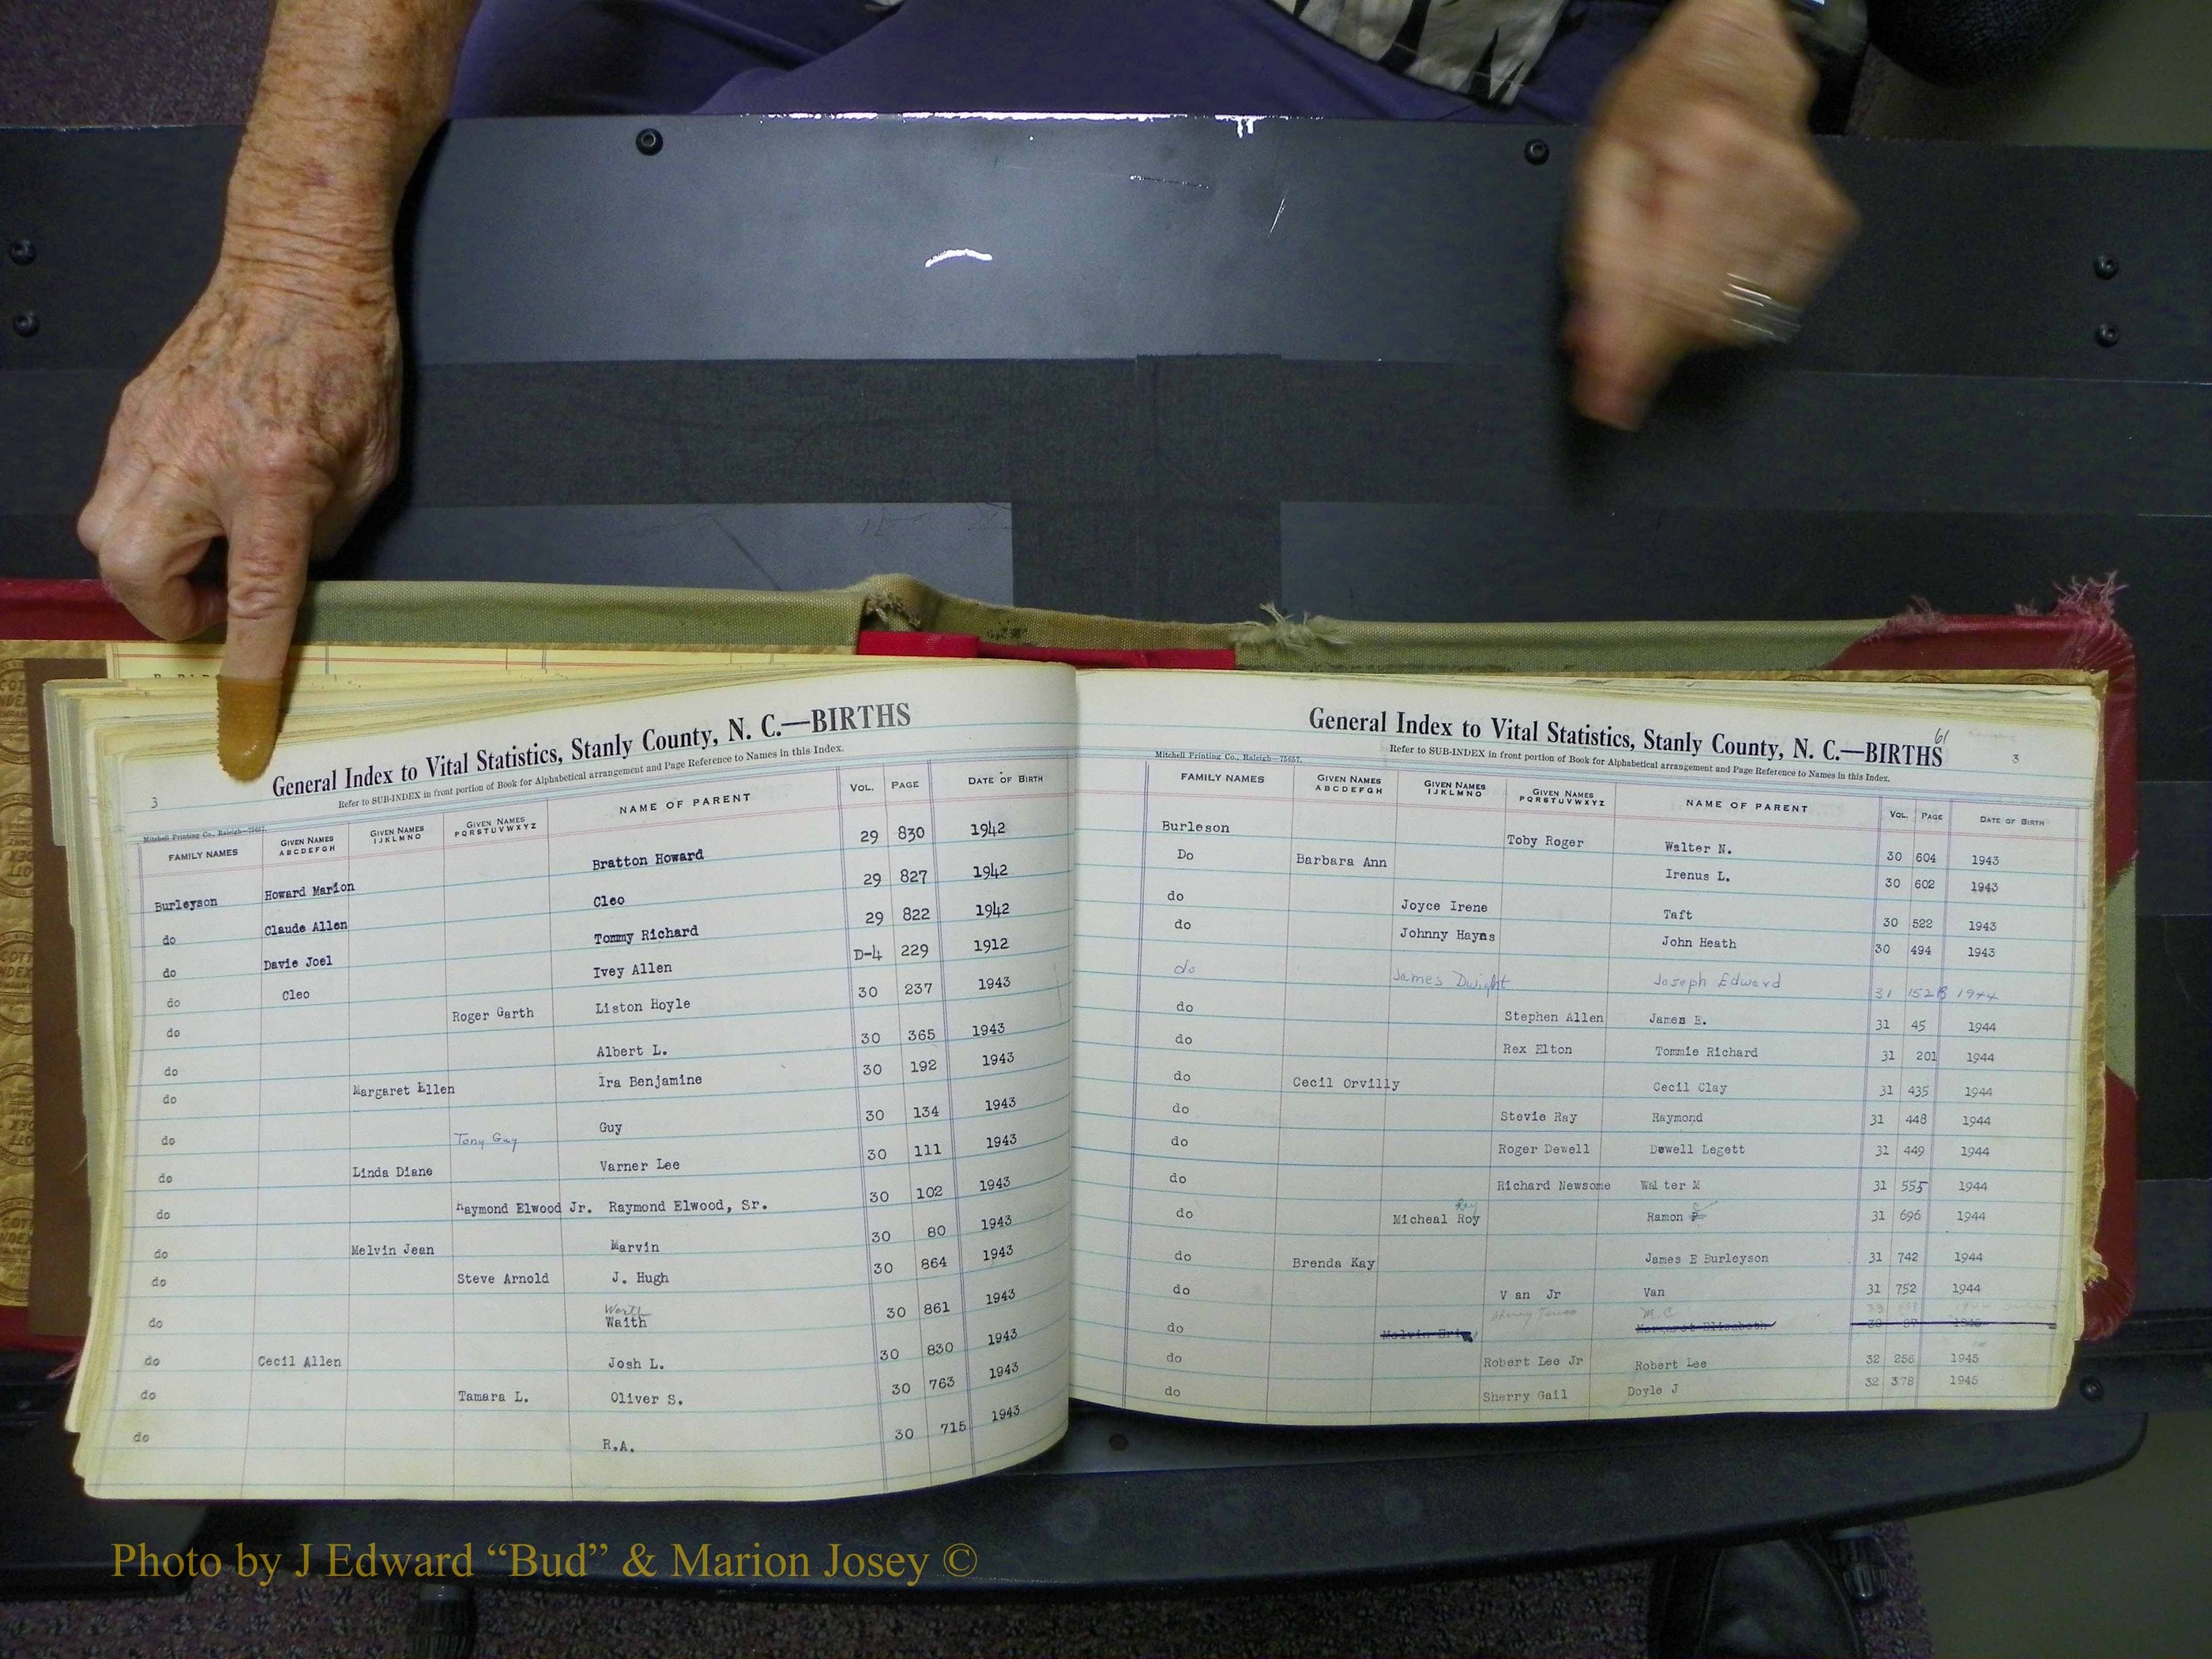 General Index to Vital Statistics, Stanly County, N. C.—BIRTHS
Refer to SUB-INDEX in front portion of Book for Alphabetical arrangement and Page Reference to Names in this Index.
3
Mitchell Printing Co., Raleigh—75657.
FAMILY NAMES GIVEN NAMES ABCDEFGH GIVEN NAMES IJKLMNO GIVEN NAMES PQRSTUVWXYZ NAME OF PARENT VOL. PAGE DATE OF BIRTH
Burleyson Howard Marion Bratton Howard 29 830 1942
do Claude Allen Cleo 29 827 1942
do Davie Joel Tommy Richard 29 822 1942
do Cleo Ivey Allen D-4 229 1912
do Roger Garth Liston Hoyle 30 237 1943
do Albert L. 30 365 1943
do Margaret Ellen Ira Benjamine 30 192 1943
do Tony Guy Guy 30 134 1943
do Linda Diane Varner Lee 30 111 1943
do Raymond Elwood Jr. Raymond Elwood, Sr. 30 102 1943
do Melvin Jean Marvin 30 80 1943
do Steve Arnold J. Hugh 30 864 1943
Worth
do Waith 30 861 1943
do Cecil Allen Josh L. 30 830 1943
do Tamara L. Oliver S. 30 763 1943
do R.A. 30 715 1943
61
General Index to Vital Statistics, Stanly County, N. C.—BIRTHS
3
Refer to SUB-INDEX in front portion of Book for Alphabetical arrangement and Page Reference to Names in this Index.
Mitchell Printing Co., Raleigh—75657.
FAMILY NAMES GIVEN NAMES ABCDEFGH GIVEN NAMES IJKLMNO GIVEN NAMES PQRSTUVWXYZ NAME OF PARENT VOL. PAGE DATE OF BIRTH
Burleson Toby Roger Walter N. 30 604 1943
Do Barbara Ann Irenus L. 30 602 1943
do Joyce Irene Taft 30 522 1943
do Johnny Hayns John Heath 30 494 1943
do James Dwight Joseph Edward 31 152B 1944
do Stephen Allen James E. 31 45 1944
do Rex Elton Tommie Richard 31 201 1944
do Cecil Orvilly Cecil Clay 31 435 1944
do Stevie Ray Raymond 31 448 1944
do Roger Dewell Dewell Legett 31 449 1944
do Richard Newsome Walter M 31 555 1944
Ray
do Micheal Roy Ramon P 31 696 1944
do Brenda Kay James E Burleyson 31 742 1944
do Van Jr Van 31 752 1944
M.C.
do Melvin Margaret Elizabeth 1945
do Robert Lee Jr Robert Lee 32 256 1945
do Sherry Gail Doyle J 32 378 1945
Photo by J Edward “Bud” & Marion Josey ©